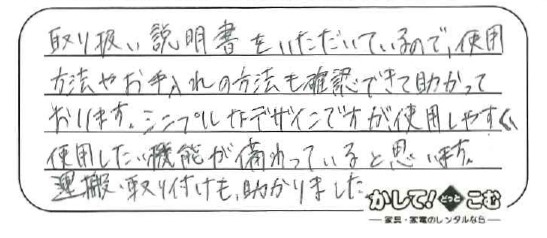 取り扱い説明書をいただいているので、使用
方法やお手入れの方法も確認できて助かって
おります。シンプルなデザインですが使用しやすく、
使用したい機能が備わっていると思います。
運搬・取り付けも、助かりました
かして!どっとこむ
家具・家電のレンタルなら